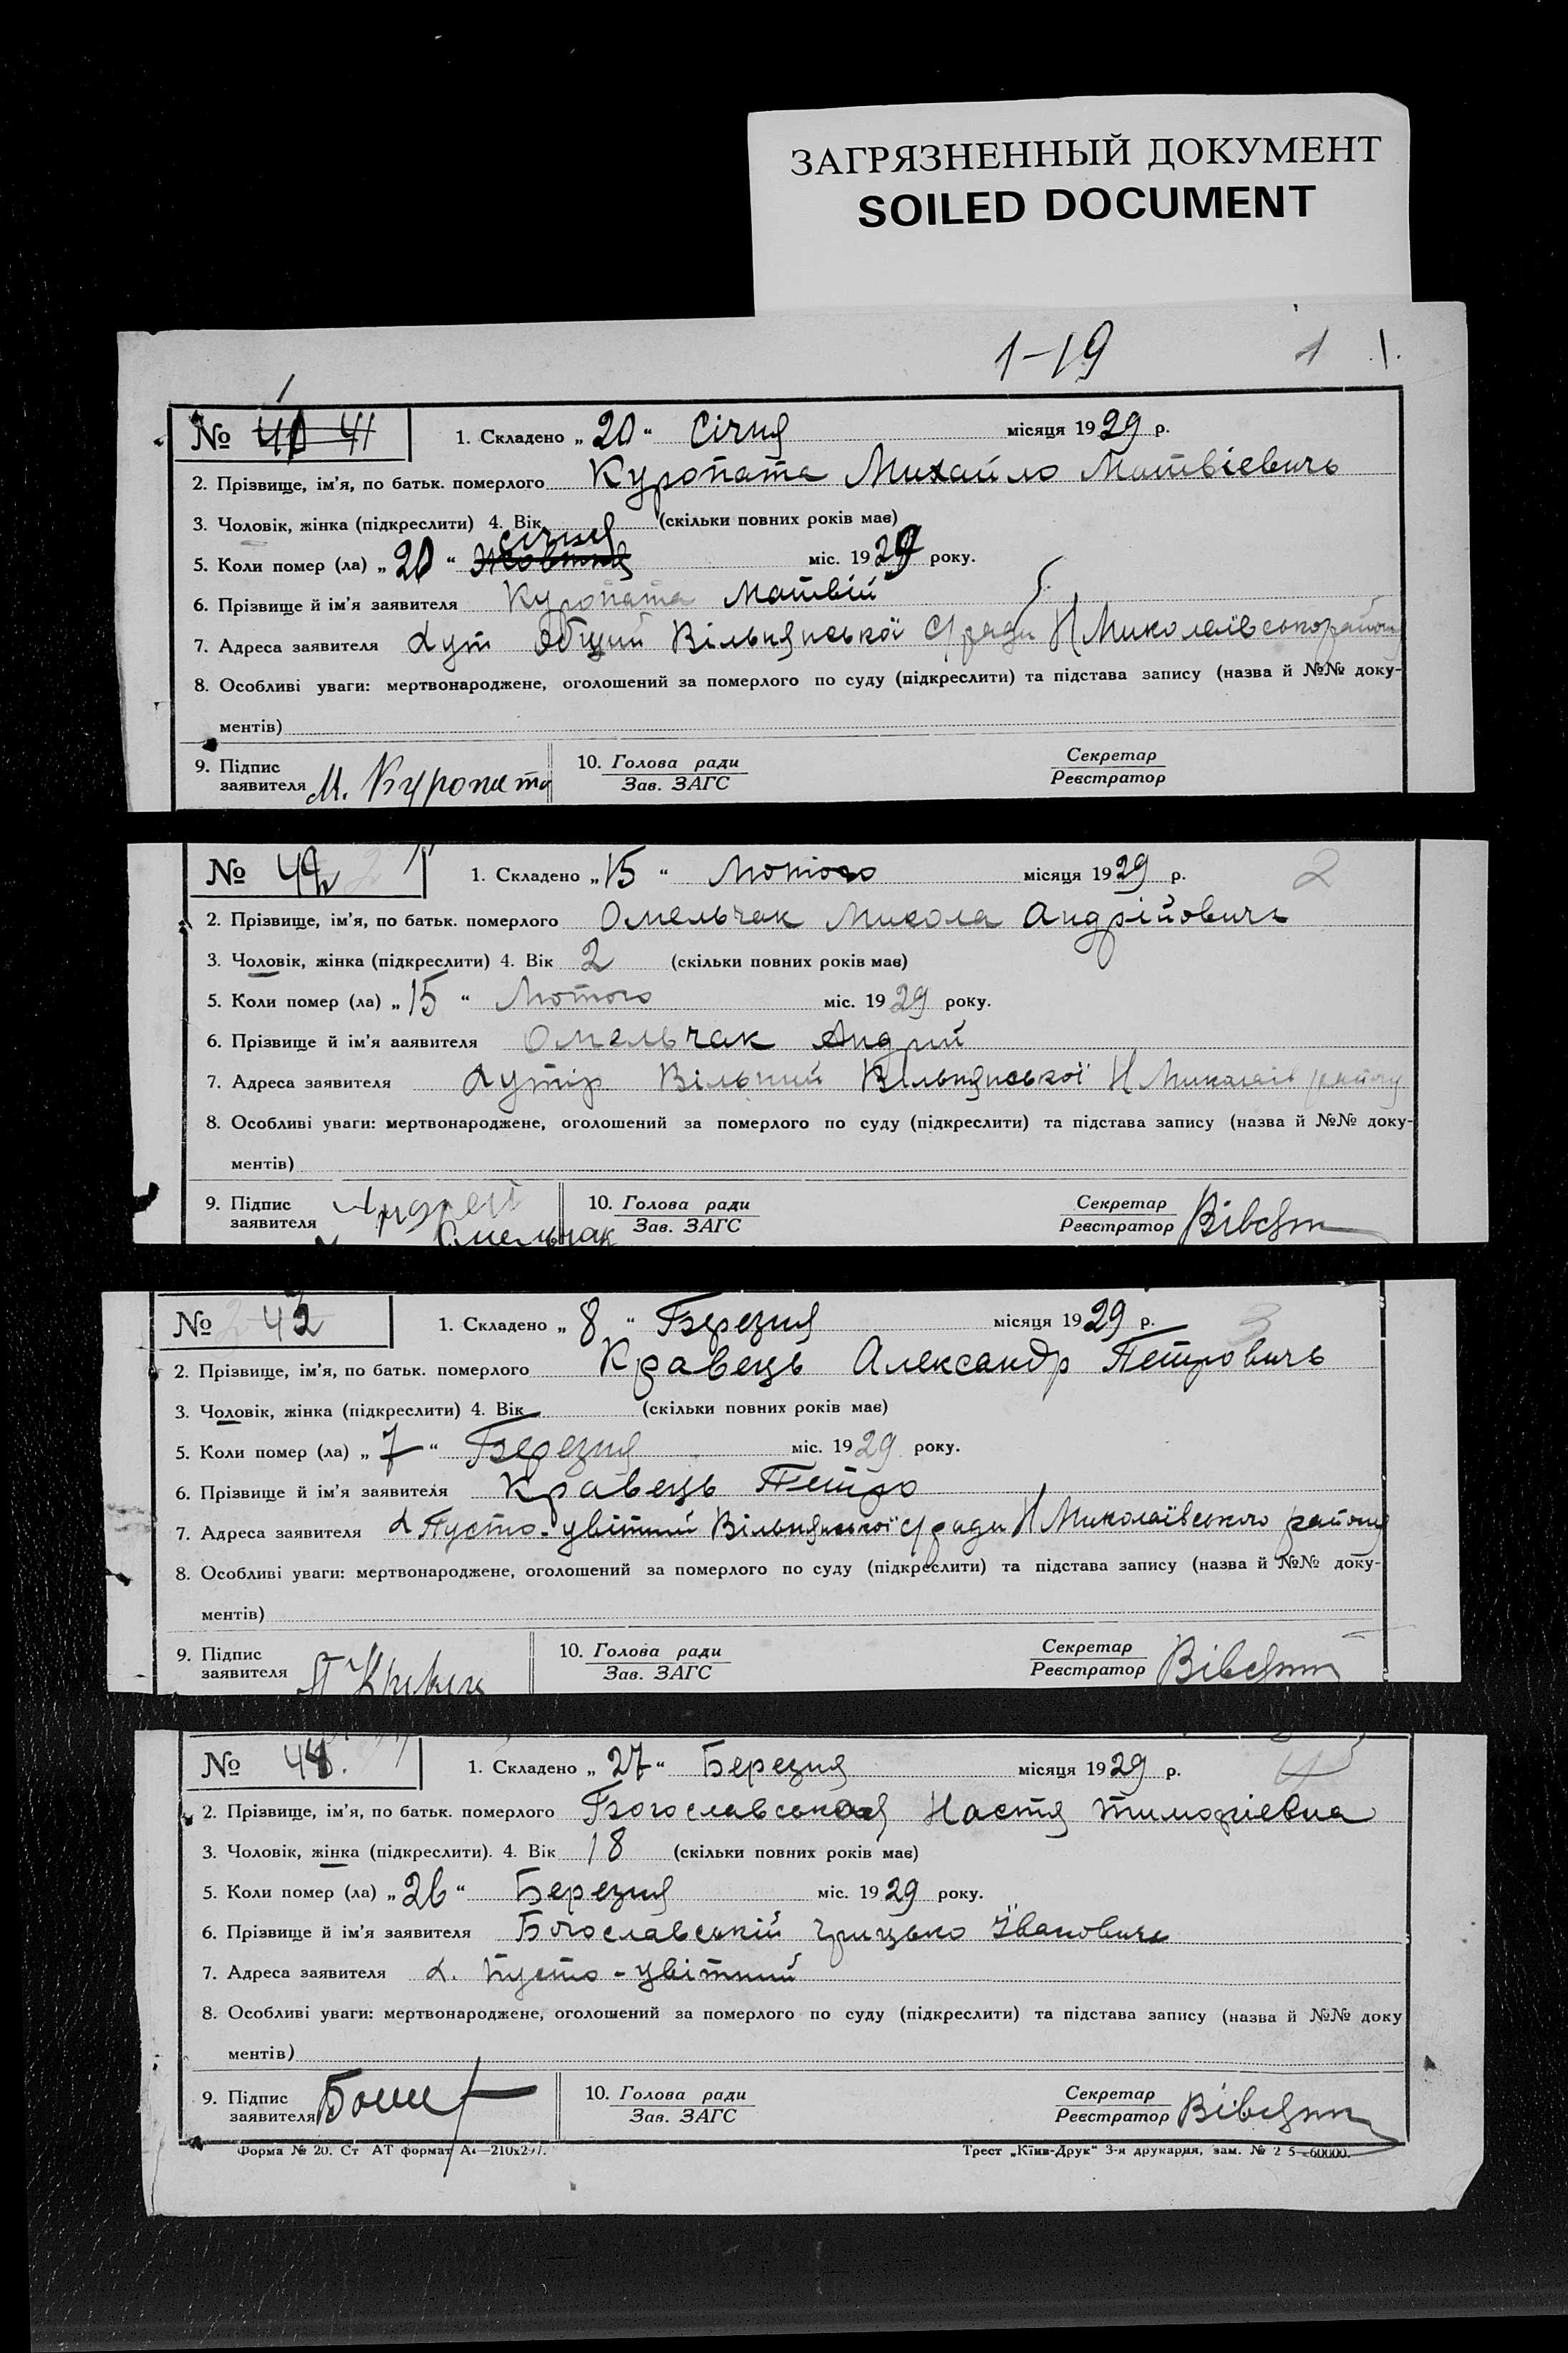 ЗАГРЯЗНЕННЫЙ ДОКУМЕНТ
SOILED DOCUMENT
1-19 1 1.
1
№ 40 41 1. Складено „ 20 “ Січня місяця 1929 р.
2. Прізвище, ім'я, по батьк. померлого Куропата Михайло Матвієвичь
3. Чоловік, жінка (підкреслити) 4. Вік (скільки повних років має)
січня
5. Коли помер (ла) „ 20 “ Жовтня міс. 1929 року.
6. Прізвище й ім'я заявителя Куропата Матвій
7. Адреса заявителя Хут Общий Вільнянської С/ради Н Миколаївського району
8. Особливі уваги: мертвонароджене, оголошений за померлого по суду (підкреслити) та підстава запису (назва й №№ доку-
ментів)
9. Підпис заявителя М. Куропата 10. Голова ради Зав. ЗАГС Секретар Реєстратор
№ 42 1. Складено „ 15 “ Лютого місяця 1929 р. 2
2. Прізвище, ім'я, по батьк. померлого Омельчак Микола Андрійовичь
3. Чоловік, жінка (підкреслити) 4. Вік 2 (скільки повних років має)
5. Коли помер (ла) „ 15 “ Лютого міс. 1929 року.
6. Прізвище й ім'я заявителя Омельчак Андрий
7. Адреса заявителя Хутір Вільний Вільнянської Н Миколаїв району
8. Особливі уваги: мертвонароджене, оголошений за померлого по суду (підкреслити) та підстава запису (назва й №№ доку-
ментів)
9. Підпис заявителя Андрей Омельчак 10. Голова ради Зав. ЗАГС Секретар Реєстратор
№ 42 1. Складено „ 8 “ Березня місяця 1929 р. 3
2. Прізвище, ім'я, по батьк. померлого Кравець Александр Петровичь
3. Чоловік, жінка (підкреслити) 4. Вік (скільки повних років має)
5. Коли помер (ла) „ 7 “ Березня міс. 1929 року.
6. Прізвище й ім'я заявителя Кравець Петро
7. Адреса заявителя Х Пусто-цвітний Вільнянської С/ради Н Миколаївського району
8. Особливі уваги: мертвонароджене, оголошений за померлого по суду (підкреслити) та підстава запису (назва й №№ доку-
ментів)
9. Підпис заявителя П 10. Голова ради Зав. ЗАГС Секретар Реєстратор
№ 44. 1. Складено „ 27 “ Березня місяця 1929 р. 4
2. Прізвище, ім'я, по батьк. померлого Богославська Настя Тимофіевна
3. Чоловік, жінка (підкреслити). 4. Вік 18 (скільки повних років має)
5. Коли помер (ла) „ 26 “ Березня міс. 1929 року.
6. Прізвище й ім'я заявителя Богославській Грицько Їванович
7. Адреса заявителя Х. Пусто-цвітний
8. Особливі уваги: мертвонароджене, оголошений за померлого по суду (підкреслити) та підстава запису (назва й №№ доку
ментів)
9. Підпис заявителя 10. Голова ради Зав. ЗАГС Секретар Реєстратор
Форма № 20. Ст АТ формат А4—210х297. Трест „Київ-Друк“ 3-я друкарня, зам. № 2 5—60000.